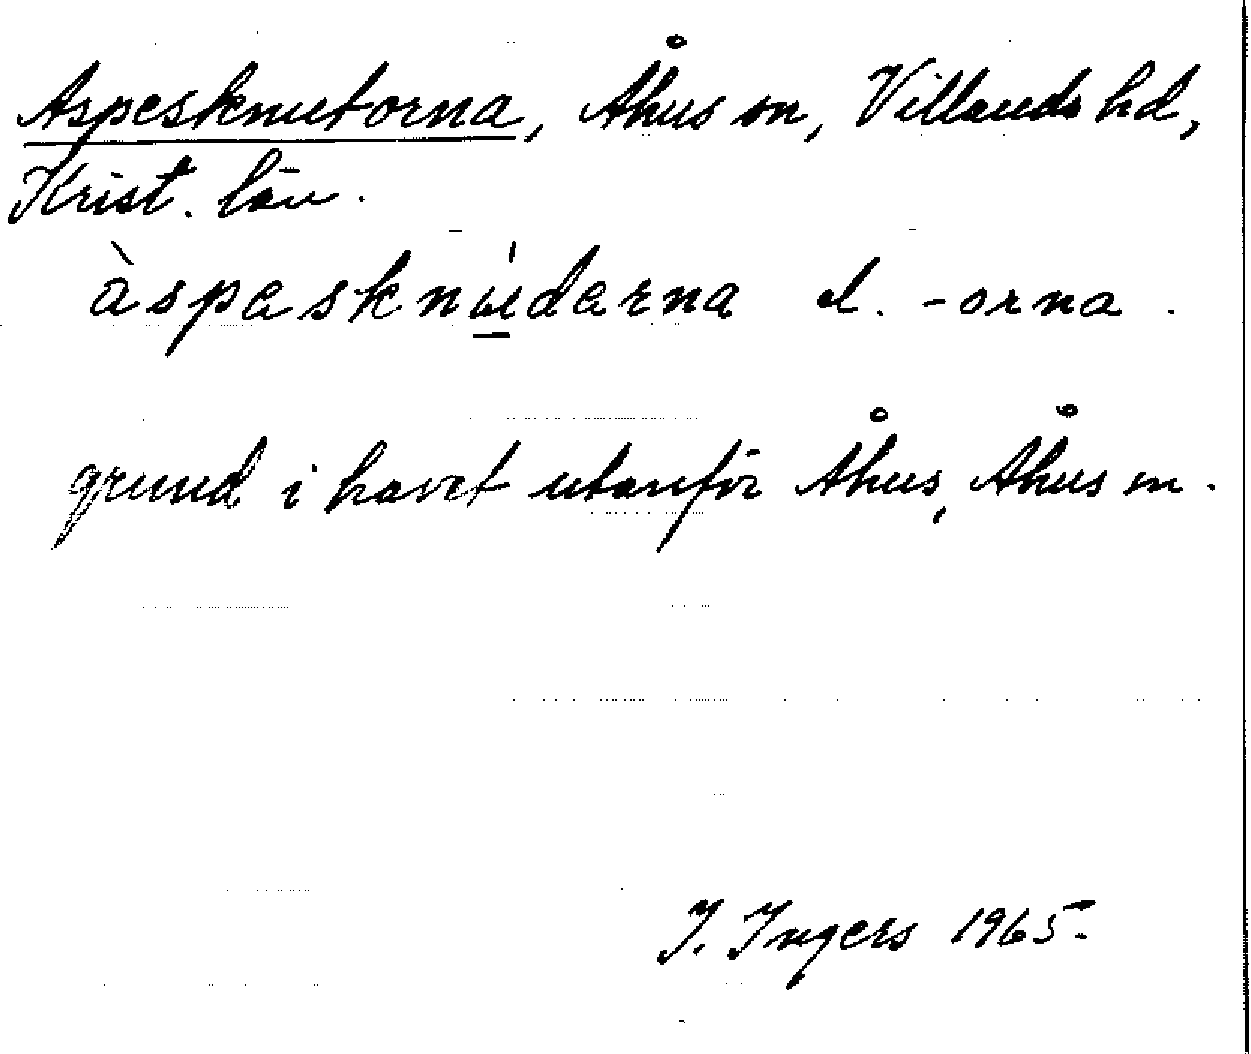 Aspesknutorna, Åhus sn, Villands hd,
Krist. län.
àspasknú̱darna el. -orna.
grund i havet utanför Åhus, Åhus sn.
I. Ingers 1965.